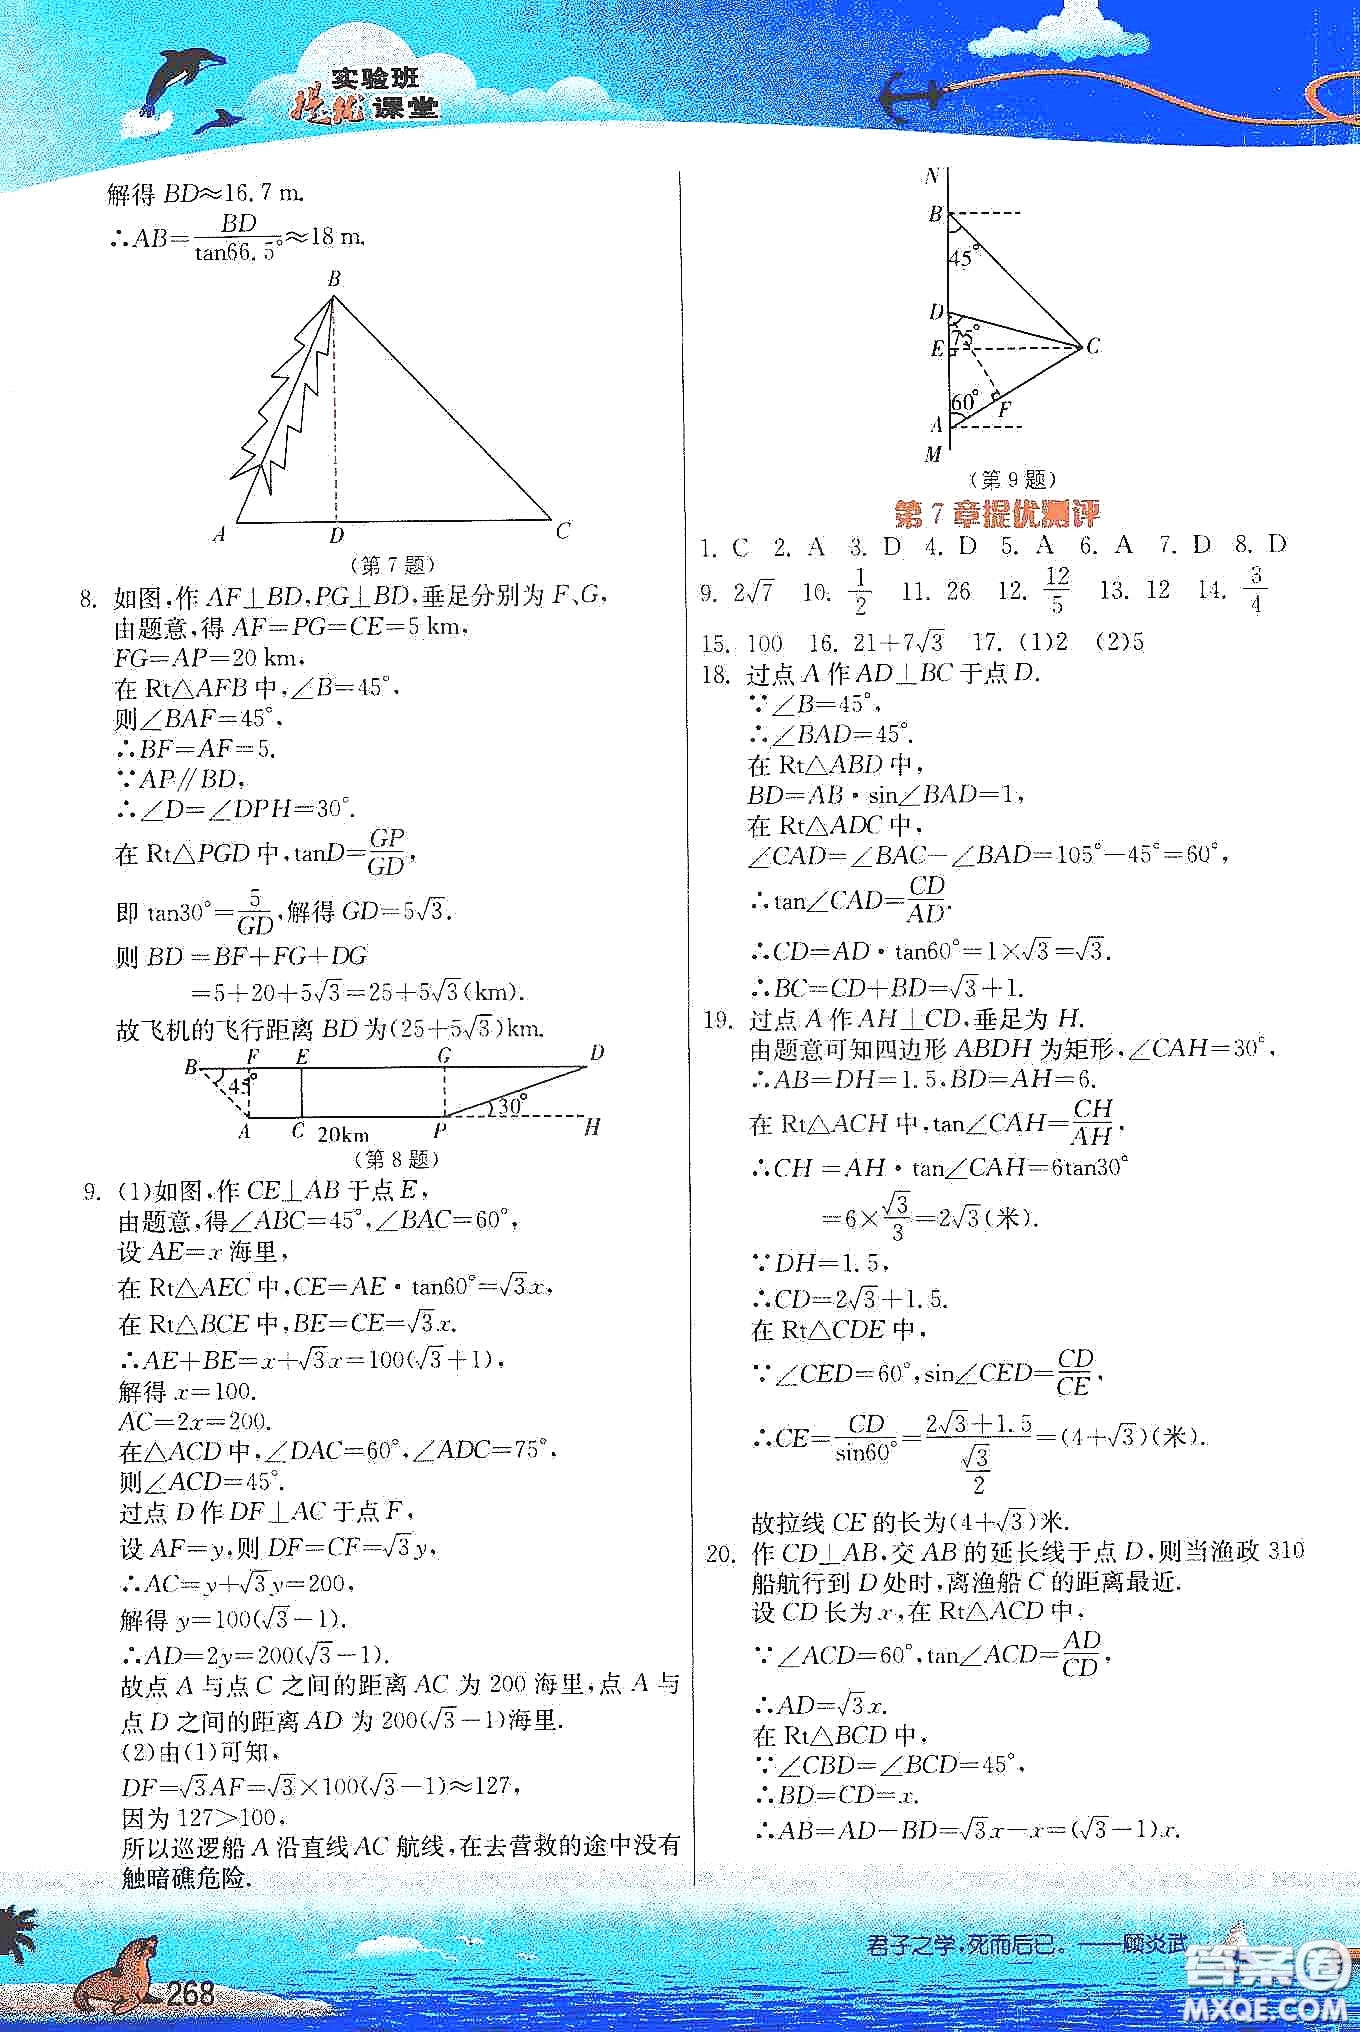 实验班
提优课堂
解得 BD≈16.7 m.
∴AB=BD/tan66.5°≈18 m.
B
A
D
C
(第7题)
8. 如图,作 AF⊥BD,PG⊥BD,垂足分别为 F、G,
由题意,得 AF=PG=CE=5 km,
FG=AP=20 km.
在 Rt△AFB 中,∠B=45°,
则∠BAF=45°,
∴BF=AF=5.
∵AP∥BD,
∴∠D=∠DPH=30°.
在 Rt△PGD 中,tanD=GP/GD,
即 tan30°=5/GD,解得 GD=5√3.
则 BD =BF+FG+DG
=5+20+5√3=25+5√3(km).
故飞机的飞行距离 BD 为(25+5√3)km.
B F E G D
45°
30°
A C 20km P H
(第8题)
9. (1)如图,作 CE⊥AB 于点 E,
由题意,得∠ABC=45°,∠BAC=60°,
设 AE=x 海里,
在 Rt△AEC 中,CE=AE·tan60°=√3x,
在 Rt△BCE 中,BE=CE=√3x.
∴AE+BE=x+√3x=100(√3+1),
解得 x=100.
AC=2x=200.
在△ACD 中,∠DAC=60°,∠ADC=75°,
则∠ACD=45°.
过点 D 作 DF⊥AC 于点 F,
设 AF=y,则 DF=CF=√3y,
∴AC=y+√3y=200,
解得 y=100(√3-1).
∴AD=2y=200(√3-1).
故点 A 与点 C 之间的距离 AC 为 200 海里,点 A 与
点 D 之间的距离 AD 为 200(√3-1)海里.
(2)由(1)可知,
DF=√3AF=√3×100(√3-1)≈127,
因为 127>100,
所以巡逻船 A 沿直线 AC 航线,在去营救的途中没有
触暗礁危险.
N
B
45°
D
75°
E
C
60°
F
A
M
(第9题)
第7章提优测评
1. C 2. A 3. D 4. D 5. A 6. A 7. D 8. D
9. 2√7 10. 1/2 11. 26 12. 12/5 13. 12 14. 3/4
15. 100 16. 21+7√3 17. (1)2 (2)5
18. 过点 A 作 AD⊥BC 于点 D.
∵∠B=45°,
∴∠BAD=45°.
在 Rt△ABD 中,
BD=AB·sin∠BAD=1,
在 Rt△ADC 中,
∠CAD=∠BAC-∠BAD=105°-45°=60°,
∴tan∠CAD=CD/AD.
∴CD=AD·tan60°=1×√3=√3.
∴BC=CD+BD=√3+1.
19. 过点 A 作 AH⊥CD,垂足为 H.
由题意可知四边形 ABDH 为矩形,∠CAH=30°,
∴AB=DH=1.5,BD=AH=6.
在 Rt△ACH 中,tan∠CAH=CH/AH,
∴CH =AH·tan∠CAH=6tan30°
=6×√3/3=2√3(米).
∵DH=1.5,
∴CD=2√3+1.5.
在 Rt△CDE 中,
∵∠CED=60°,sin∠CED=CD/CE,
∴CE=CD/sin60°=(2√3+1.5)/(√3/2)=(4+√3)(米).
故拉线 CE 的长为(4+√3)米.
20. 作 CD⊥AB,交 AB 的延长线于点 D,则当渔政 310
船航行到 D 处时,离渔船 C 的距离最近.
设 CD 长为 x,在 Rt△ACD 中,
∵∠ACD=60°,tan∠ACD=AD/CD,
∴AD=√3x.
在 Rt△BCD 中,
∵∠CBD=∠BCD=45°,
∴BD=CD=x.
∴AB=AD-BD=√3x-x=(√3-1)x.
君子之学,死而后已。——顾炎武
268
答案圈
MXQE.COM